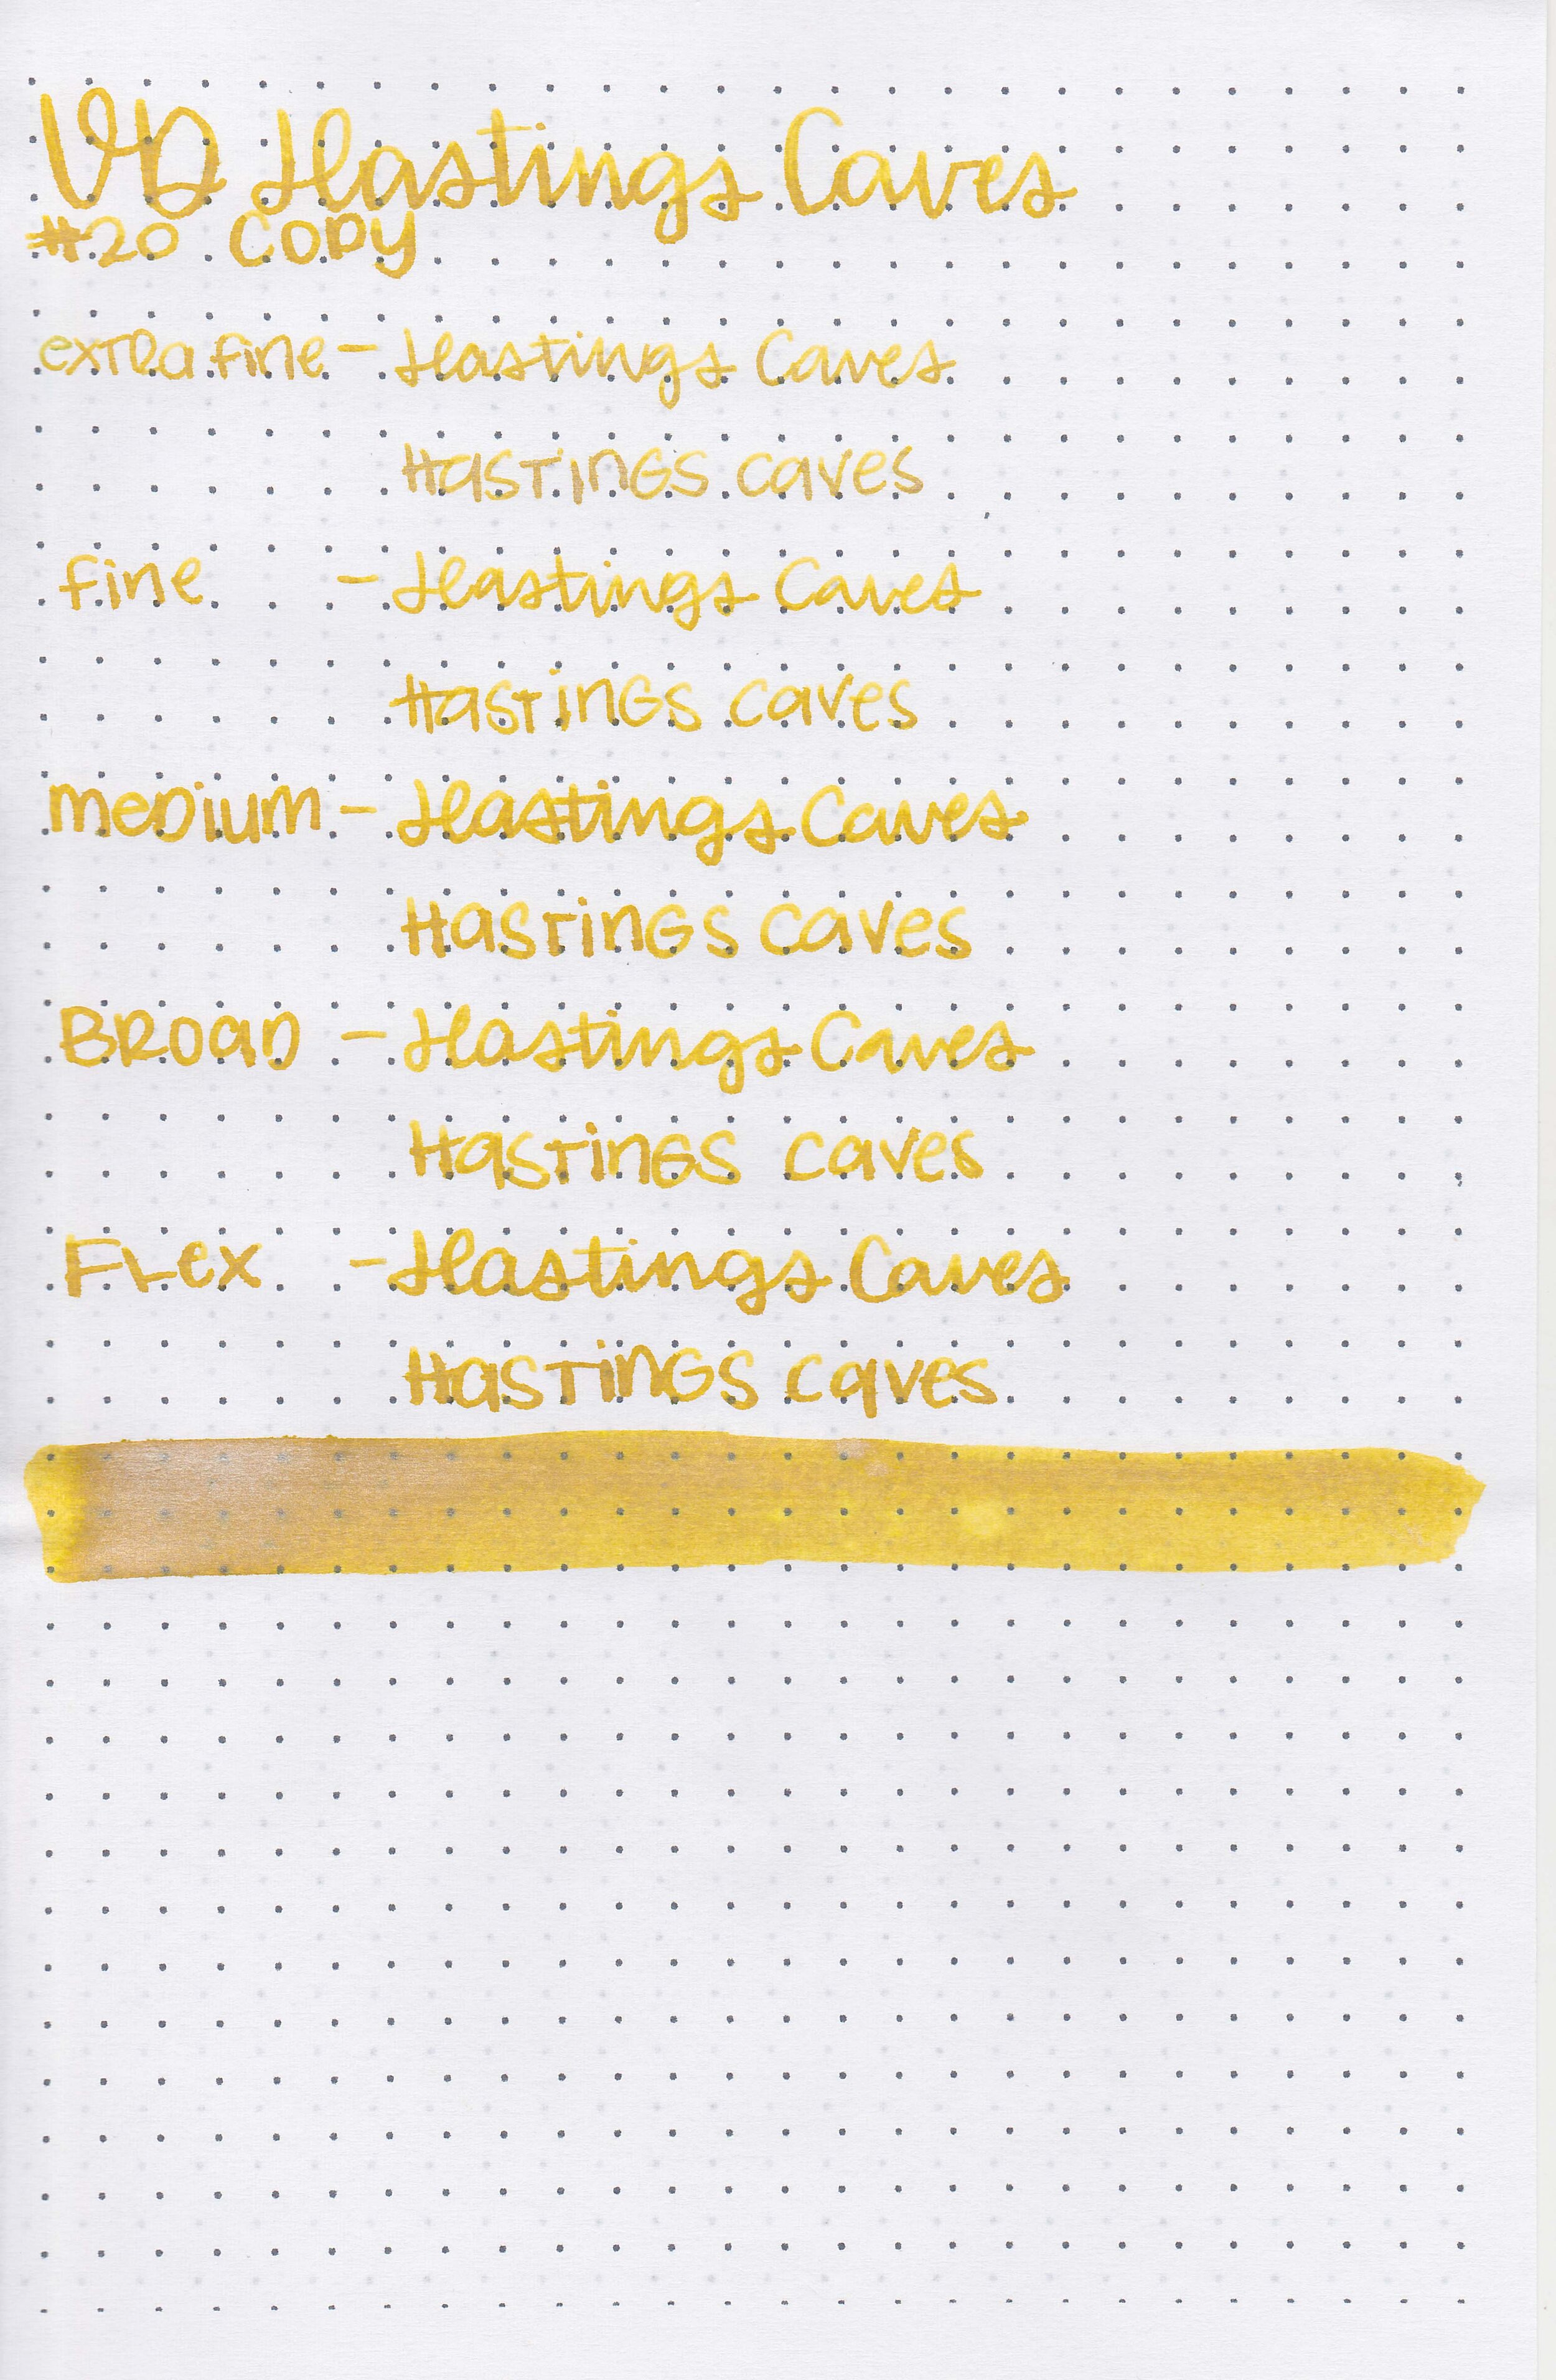 VD Hastings Caves
#20 Copy
extra fine - Hastings Caves
Hastings Caves
fine - Hastings Caves
Hastings Caves
medium - Hastings Caves
Hastings Caves
Broad - Hastings Caves
Hastings Caves
Flex - Hastings Caves
Hastings Caves